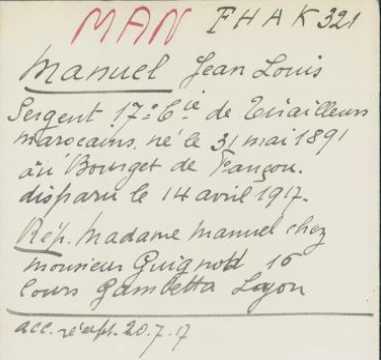 MAN FHAK 321
Manuel Jean Louis
Sergent 17e Cie de Tirailleurs
marocains, né le 31 mai 1891
au Bourget de
disparu le 14 avril 1917.
Rép. Madame Manuel chez
Monsieur Guignot 16
Cours Gambetta Lyon
acc. récept. 20.7.17